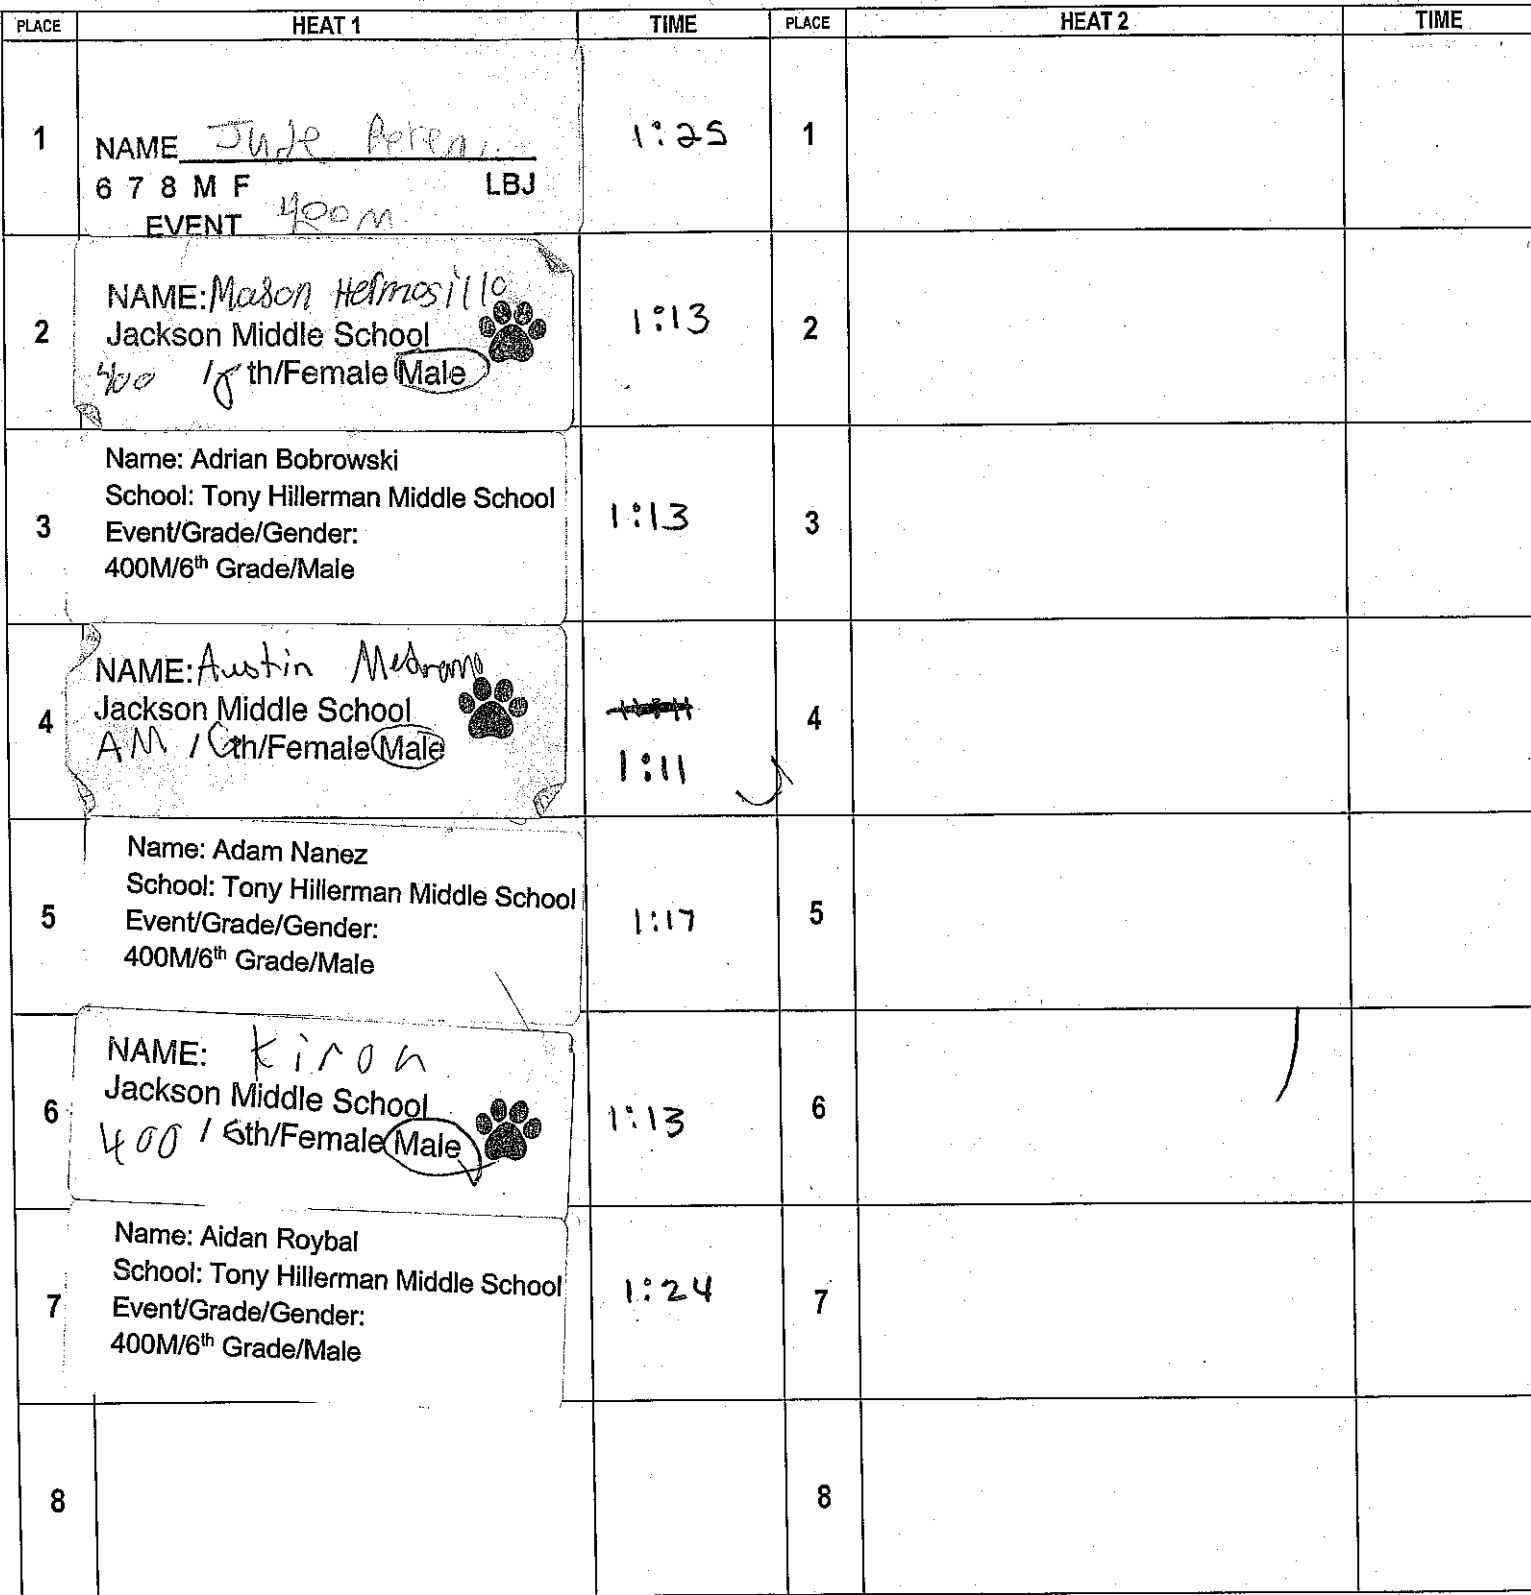 PLACE HEAT 1 TIME PLACE HEAT 2 TIME
1 NAME Jude 1:25 1
6 7 8 M F LBJ
EVENT 400m
NAME: Mason Hermosillo
2 Jackson Middle School 1:13 2
400 / th/Female Male
Name: Adrian Bobrowski
School: Tony Hillerman Middle School
3 Event/Grade/Gender: 1:13 3
400M/6th Grade/Male
NAME: Austin Medrano
4 Jackson Middle School 4
AM / 6th/Female Male 1:11
Name: Adam Nanez
School: Tony Hillerman Middle School
5 Event/Grade/Gender: 1:17 5
400M/6th Grade/Male
NAME: Kiron
Jackson Middle School
6 400 / 6th/Female Male 1:13 6
Name: Aidan Roybal
School: Tony Hillerman Middle School
7 Event/Grade/Gender: 1:24 7
400M/6th Grade/Male
8 8